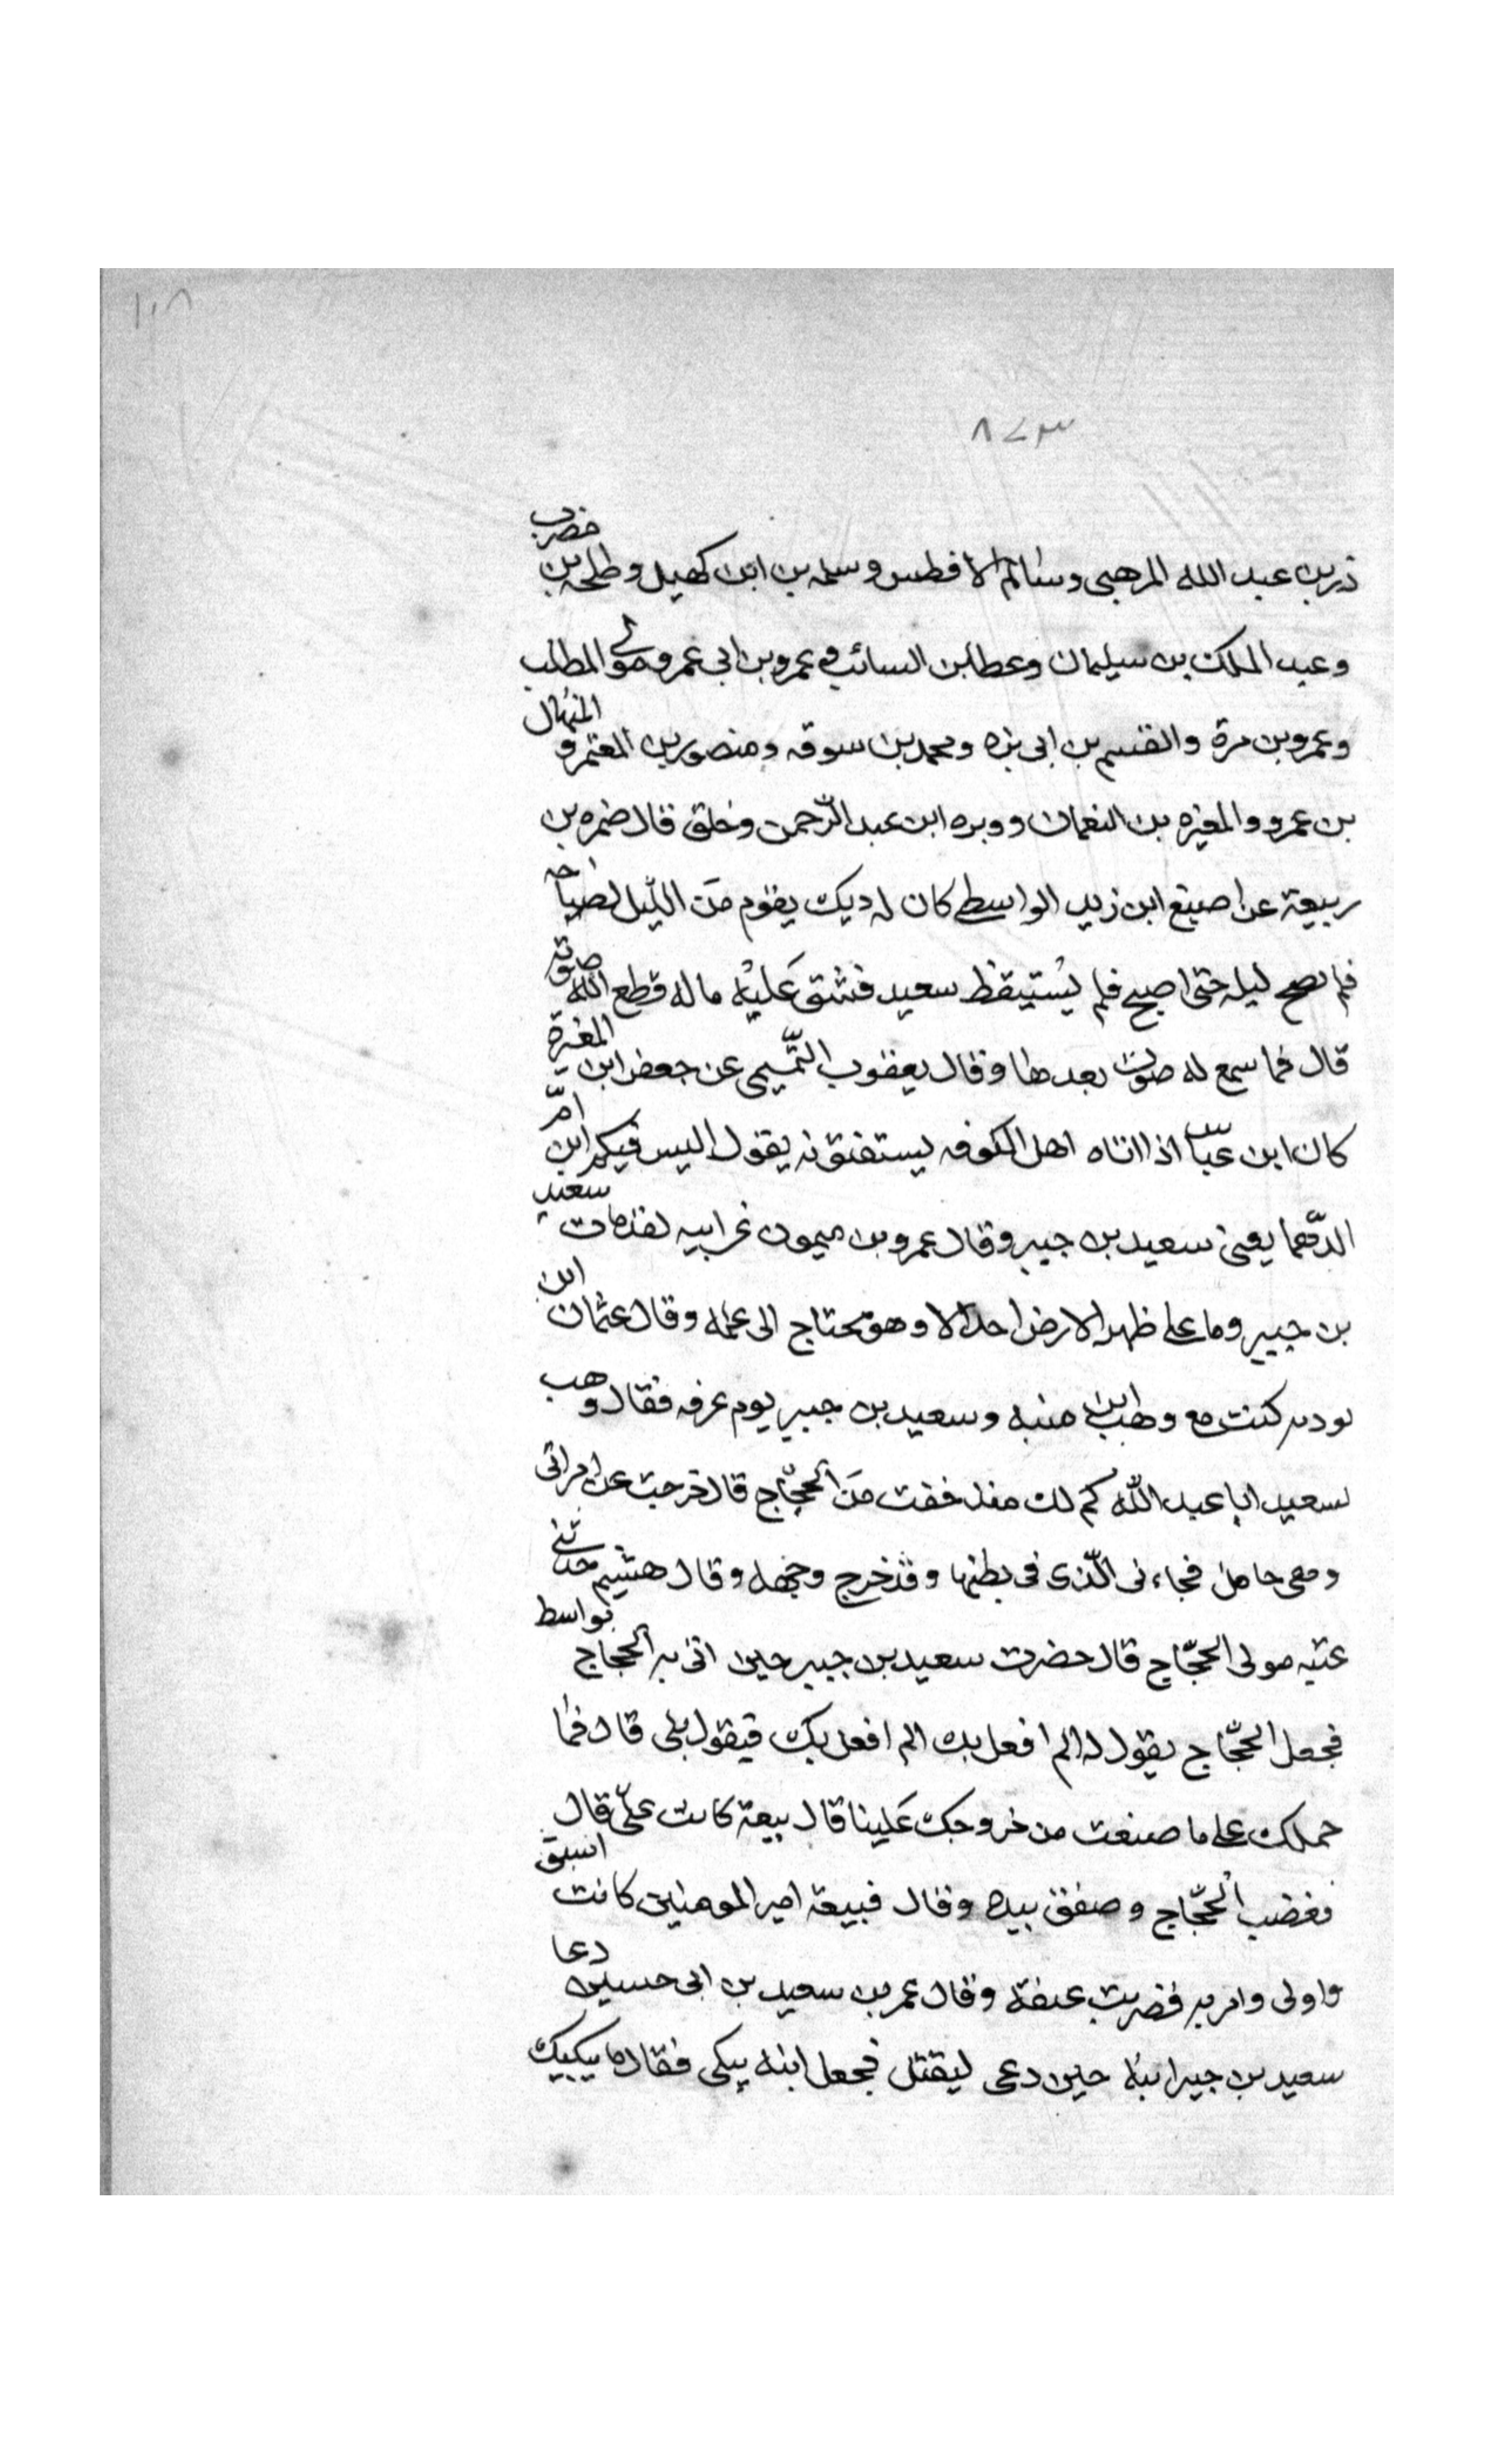 ١٠٨
٨٧٣
ذر بن عبد الله المرهبي وسالم الافطس وسلمه بن ابن كهيل وطلحه بن مصرف
وعبد الملك بن سليمان وعطا بن السائب وعمرو بن ابي عمرو مولى المطلب
وعمرو بن مرة والقسم بن ابي بزه ومحمد بن سوقه ومنصور بن المعتمر والمنهال
بن عمرو والمغيره بن النعمان ووبره ابن عبد الرّحمن وخلق قال ضمره بن
ربيعة عن اصبغ ابن زيد الواسطي كان له ديك يقوم مَن اللّيل لصياحه
فلم يصح ليله حتى اصبح فلم يُستيقظ سعيد فشق عَليْه ماله قطع الله صوته
قال فما سمع له صوت بعدها وقال يعقوب التّميمى عن جعفر ابن المغيرة
كان ابن عبّاس اذا اتاه اهل الكوفه يستفتونه يقول اليس فيكم ابن امّ
الدّهما يعنى سعيد بن جبير وقال عمرو بن ميمون عن ابيه لقد مات سعيد
بن جبير وما على ظهر الارض احد الا وهو محتاج الى علمه وقال عثمان ابن
بودىه كنت مع وهب ابن منبه وسعيد بن جبير يوم عرفه فقال وهب
لسعيد ابا عبد اللّه كم لك منذ خفت مَن الحجّاج قال خرجت عن امراتى
وهى حامل فجاءنى الّذى فى بطنها وقد خرج وجهه وقال هشيم حدثنى
عتبه مولى الحجّاج قال حضرت سعيد بن جبير حين اتى به الحجّاج بواسط
فجعل الحجّاج يقول له الم افعل بك الم افعل بك فيقول بلى قال فما
حملك على ما صنعت من خروجك عَلينا قال بيعة كانت علىّ قال
فغضب الحجّاج وصفق بيده وقال فبيعة امير المومنين كانت اسبق
واولى وامر به فضربت عنقه وقال عمر بن سعيد بن ابى حسين دعا
سعيد بن جبير ابنه حين دعى ليقتل فجعل ابنه يبكى فقال ما يبكيك